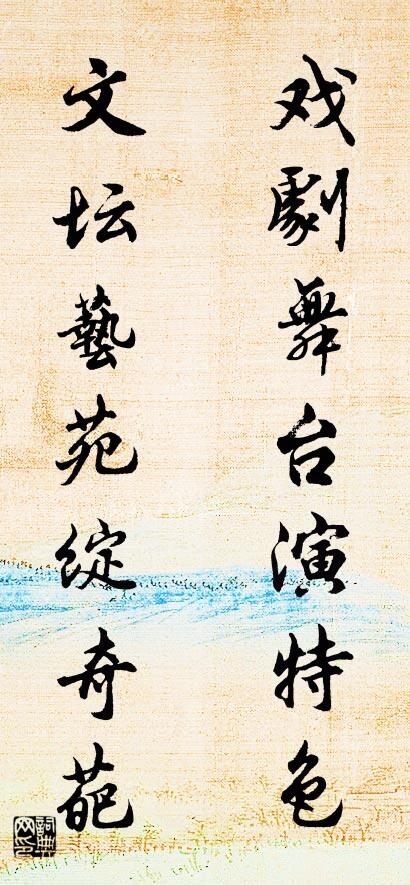 戏劇舞台演特色
文坛藝苑綻奇葩
詞典网印